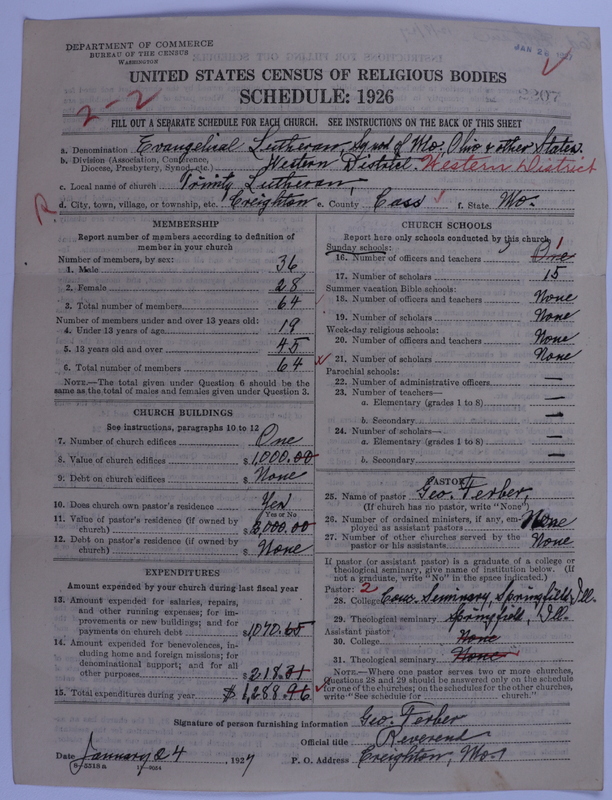 DEPARTMENT OF COMMERCE
BUREAU OF THE CENSUS
WASHINGTON
JAN 26
UNITED STATES CENSUS OF RELIGIOUS BODIES
SCHEDULE: 1926
2-2
2307
FILL OUT A SEPARATE SCHEDULE FOR EACH CHURCH. SEE INSTRUCTIONS ON THE BACK OF THIS SHEET
a. Denomination Evangelical Lutheran, Synod of Mo. Ohio & other States.
b. Division (Association, Conference, Diocese, Presbytery, Synod, etc.) Western District. Western District
c. Local name of church Trinity Lutheran,
R d. City, town, village, or township, etc. Creighton e. County Cass f. State Mo.
MEMBERSHIP
Report number of members according to definition of member in your church
Number of members, by sex:
1. Male 36
2. Female 28
3. Total number of members 64
Number of members under and over 13 years old:
4. Under 13 years of age 19
5. 13 years old and over 45
6. Total number of members 64
NOTE.—The total given under Question 6 should be the same as the total of males and females given under Question 3.
CHURCH BUILDINGS
See instructions, paragraphs 10 to 12
7. Number of church edifices One
8. Value of church edifices $1,000.00
9. Debt on church edifices $ None
10. Does church own pastor's residence Yes
Yes or No
11. Value of pastor's residence (if owned by church) $ ,000.00
12. Debt on pastor's residence (if owned by church) $ None
EXPENDITURES
Amount expended by your church during last fiscal year
13. Amount expended for salaries, repairs, and other running expense; for improvements or new buildings; and for payments on church debt $1070.65
14. Amount expended for benevolences, including home and foreign missions; for denominational support; and for all other purposes $218.31
15. Total expenditures during year $1,288.96
CHURCH SCHOOLS
Report here only schools conducted by this church
Sunday schools:
16. Number of officers and teachers One 1
17. Number of scholars 15
Summer vacation Bible schools:
18. Number of officers and teachers None
19. Number of scholars None
Week-day religious schools:
20. Number of officers and teachers None
21. Number of scholars None
Parochial schools:
22. Number of administrative officers —
23. Number of teachers—
a. Elementary (grades 1 to 8) —
b. Secondary —
24. Number of scholars—
a. Elementary (grades 1 to 8) —
b. Secondary —
PASTOR
25. Name of pastor Geo. Ferber,
(If church has no pastor, write "None")
26. Number of ordained ministers, if any, employed as assistant pastors None
27. Number of other churches served by the pastor or his assistants None
If pastor (or assistant pastor) is a graduate of a college or theological seminary, give name of institution below. (If not a graduate, write "No" in the space indicated.)
Pastor: 2
28. College Conc. Seminary Springfield, Ill.
29. Theological seminary Springfield, Ill.
Assistant pastor:
30. College None
31. Theological seminary None
NOTE.—Where one pastor serves two or more churches, Questions 28 and 29 should be answered only on the schedule for one of the churches; on the schedules for the other churches, write "See schedule for church."
Signature of person furnishing information Geo. Ferber
Official title Reverend
Date January 24, 1927 P. O. Address Creighton, Mo.
8-5318a 11-9034